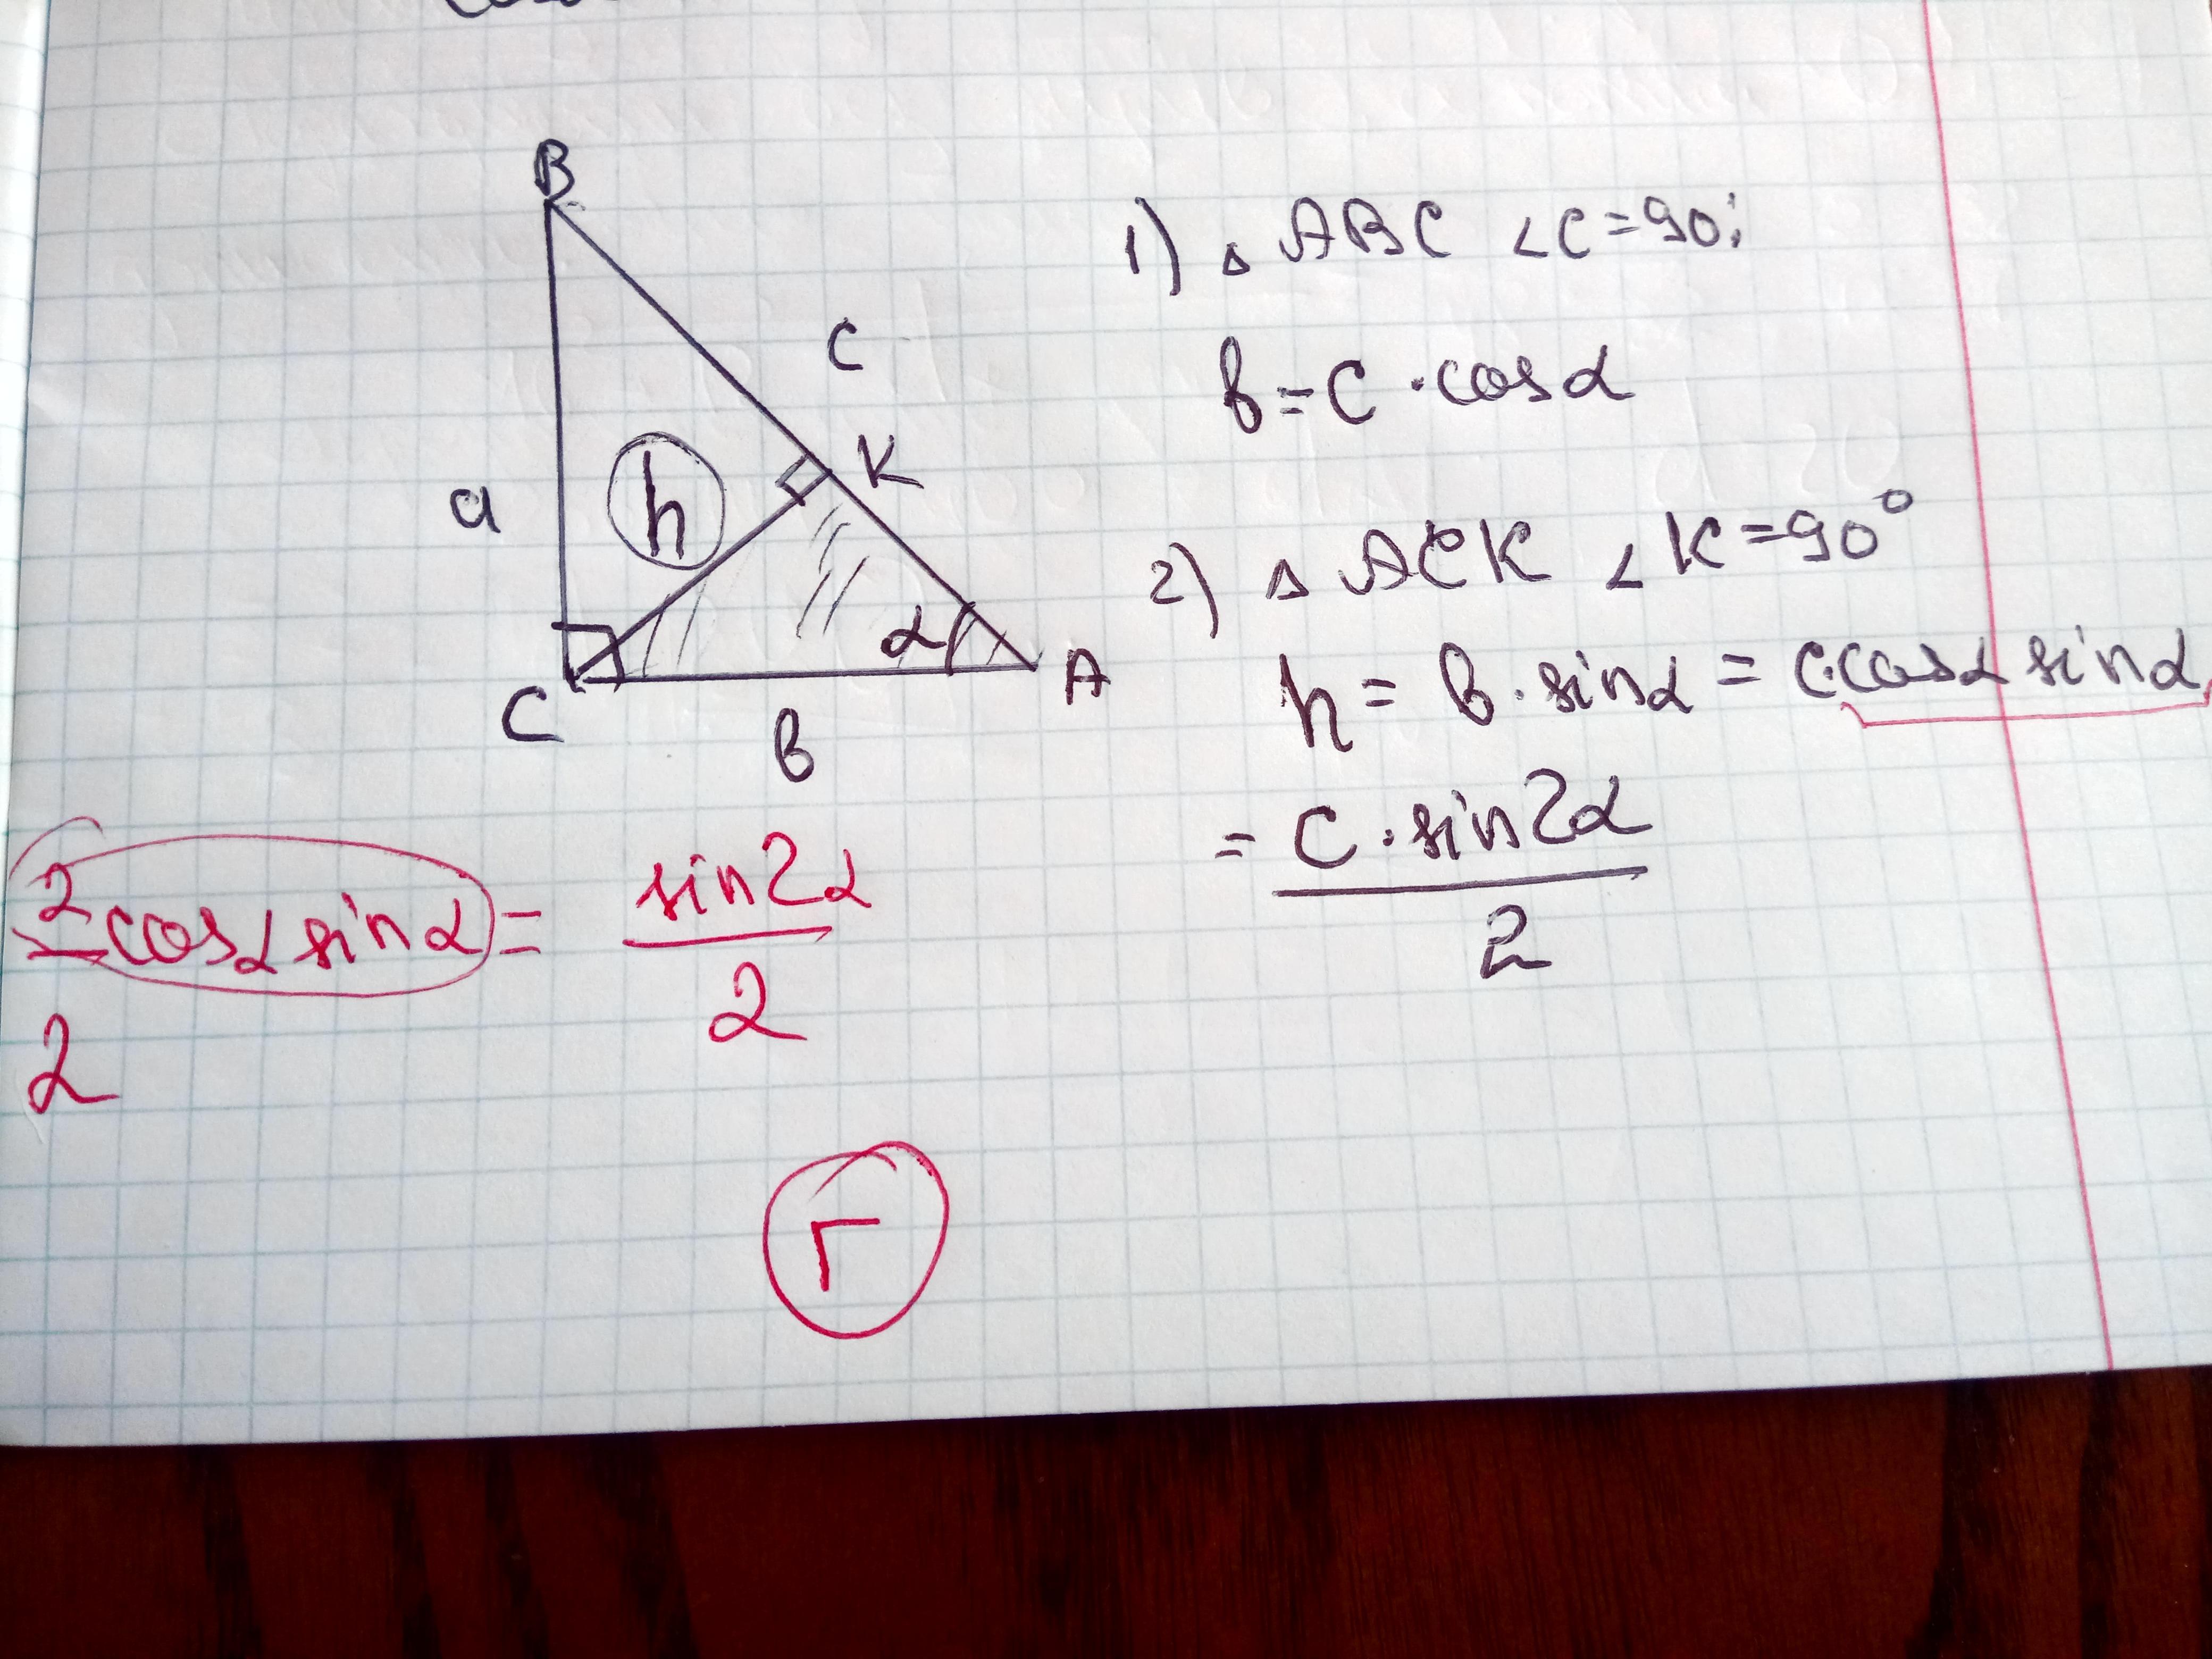 B
c
K
h
a
α
A
C
в
1) △ ABC ∠C=90;
в=c·cosα
2) △ ACK ∠K=90°
h = в·sinα = c·cosα sinα
= c·sin2α
2
2cosα sinα = sin2α
2 2
Г